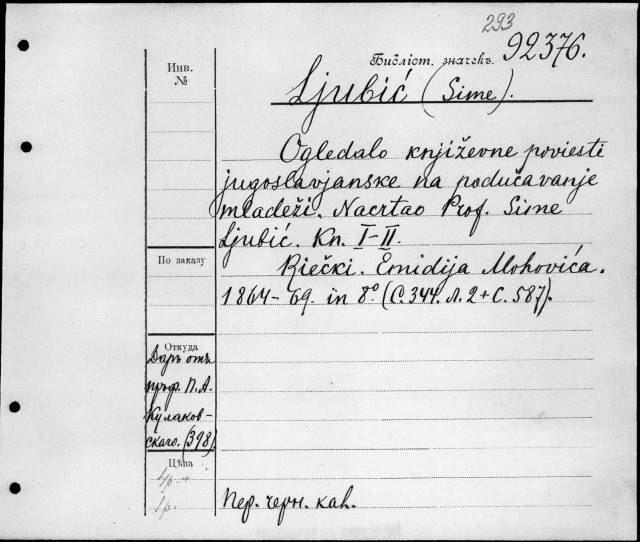 293
Библіот. значекъ. 92376.
Инв.
№
Ljubić (Sime).
Ogledalo književne poviesti
jugoslavjanske na podučavanje
mladeži. Nacrtao Prof. Sime
Ljubić. Kn. I-II.
По заказу
Riečki. Emidija Mohovića.
1864-69. in 8° (С. 344. Л. 2 + С. 587).
Откуда
Даръ отъ
проф. П. А.
Кулаков-
скаго. (398)
Цѣна
4р.
1р.
Пер. черн. кал.